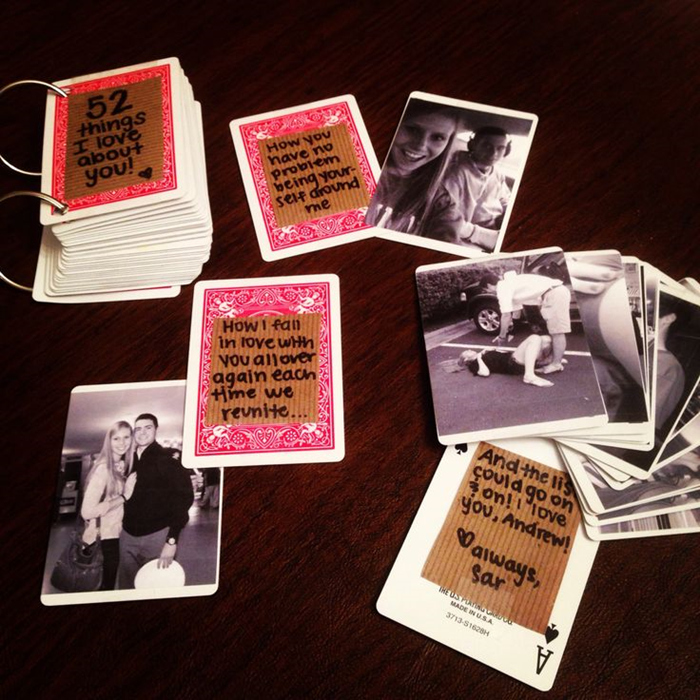 52
things
I love
about
you!
How you
have no
problem
being your-
self around
me
How I fall
in love with
you all over
again each
time we
reunite...
And the lis
could go on
& on! I love
you, Andrew!
always,
sar
THE U.S. PLAYING CARD CO.
MADE IN U.S.A.
3713-S1628H
A